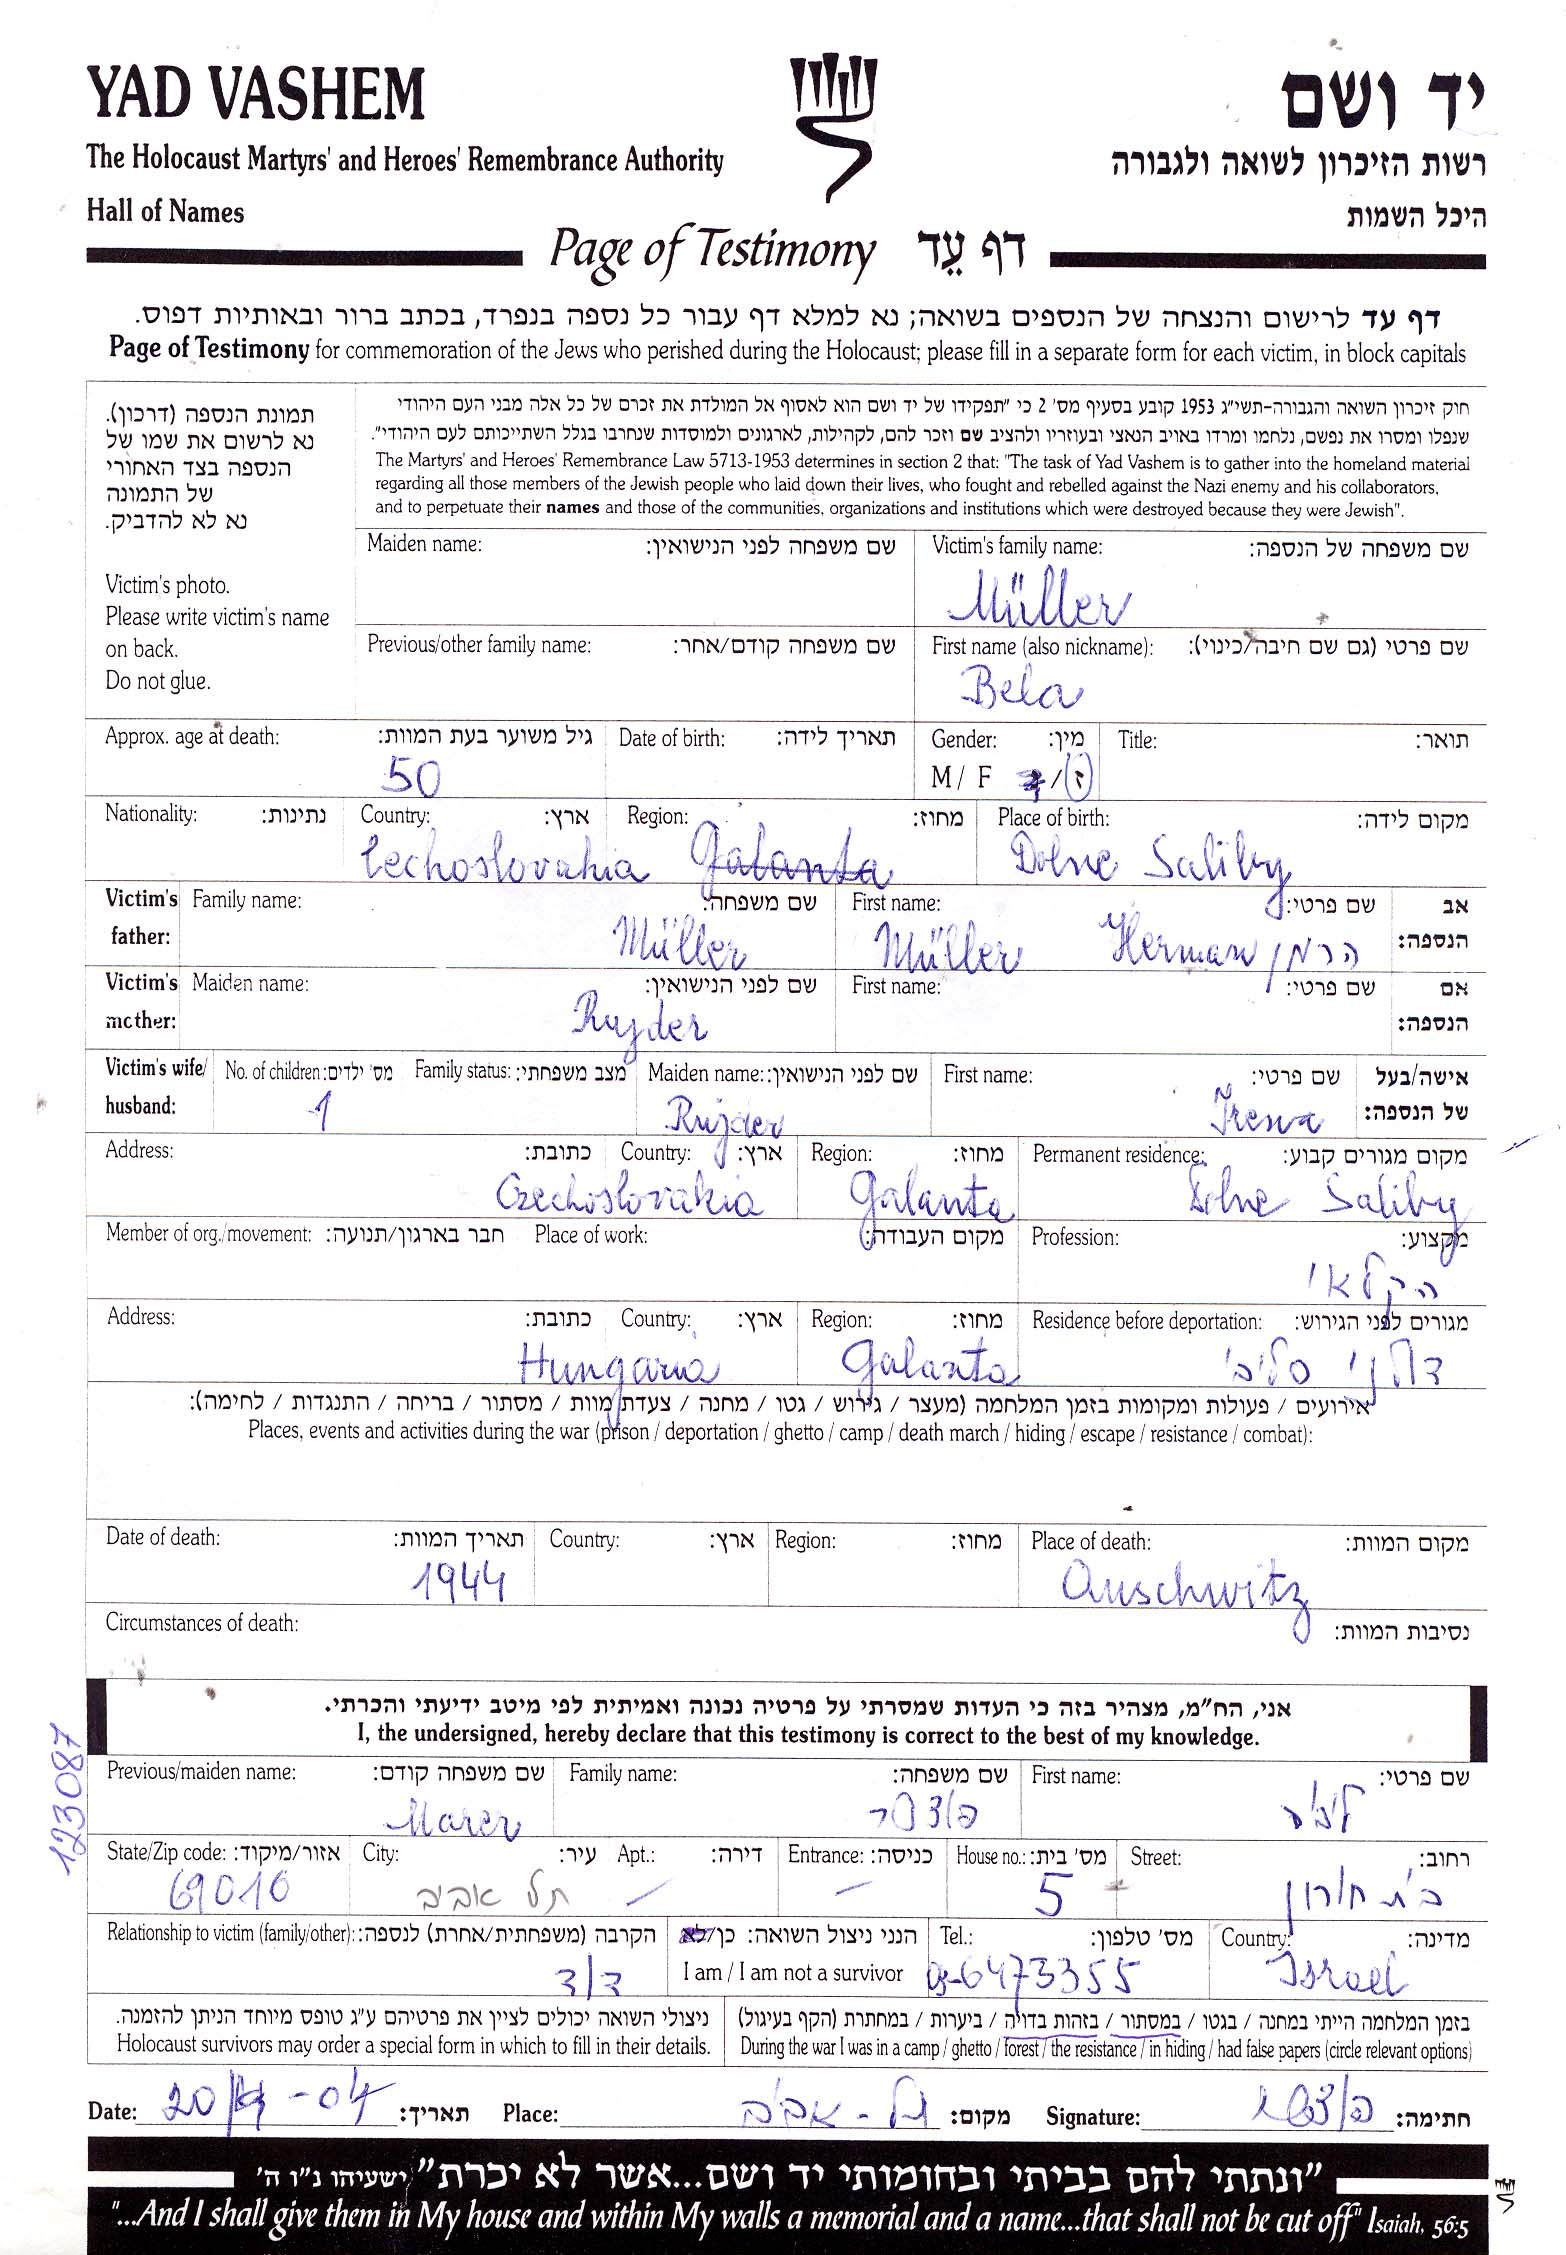 YAD VASHEM
יד ושם
The Holocaust Martyrs' and Heroes' Remembrance Authority
רשות הזיכרון לשואה ולגבורה
Hall of Names
היכל השמות
Page of Testimony דף עֵד
דף עד לרישום והנצחה של הנספים בשואה; נא למלא דף עבור כל נספה בנפרד, בכתב ברור ובאותיות דפוס.
Page of Testimony for commemoration of the Jews who perished during the Holocaust; please fill in a separate form for each victim, in block capitals
תמונת הנספה (דרכון).
נא לרשום את שמו של
הנספה בצד האחורי
של התמונה
נא לא להדביק.
Victim's photo.
Please write victim's name
on back.
Do not glue.
חוק זיכרון השואה והגבורה-תשי"ג 1953 קובע בסעיף מס' 2 כי "תפקידו של יד ושם הוא לאסוף אל המולדת את זכרם של כל אלה מבני העם היהודי
שנפלו ומסרו את נפשם, נלחמו ומרדו באויב הנאצי ובעוזריו ולהציב שם וזכר להם, לקהילות, לארגונים ולמוסדות שנחרבו בגלל השתייכותם לעם היהודי".
The Martyrs' and Heroes' Remembrance Law 5713-1953 determines in section 2 that: "The task of Yad Vashem is to gather into the homeland material
regarding all those members of the Jewish people who laid down their lives, who fought and rebelled against the Nazi enemy and his collaborators,
and to perpetuate their names and those of the communities, organizations and institutions which were destroyed because they were Jewish".
Maiden name: שם משפחה לפני הנישואין: Victim's family name: שם משפחה של הנספה:
Müller
Previous/other family name: שם משפחה קודם/אחר: First name (also nickname): שם פרטי (גם שם חיבה/כינוי):
Bela
Approx. age at death: גיל משוער בעת המוות: Date of birth: תאריך לידה: Gender: מין: Title: תואר:
50 M / F / ז
Nationality: נתינות: Country: ארץ: Region: מחוז: Place of birth: מקום לידה:
Cechoslovakia Galanta Dolne Saliby
Victim's father: Family name: שם משפחה: First name: שם פרטי: אב הנספה:
Müller Müller Herman הרמן
Victim's mother: Maiden name: שם לפני הנישואין: First name: שם פרטי: אם הנספה:
Rujder
Victim's wife/ husband: No. of children: מס' ילדים: Family status: מצב משפחתי: Maiden name: שם לפני הנישואין: First name: שם פרטי: אישה/בעל של הנספה:
1 Rujder Irena
Address: כתובת: Country: ארץ: Region: מחוז: Permanent residence: מקום מגורים קבוע:
Czechoslovakia Galanta Dolne Saliby
Member of org./movement: חבר בארגון/תנועה: Place of work: מקום העבודה: Profession: מקצוע:
הקלאי
Address: כתובת: Country: ארץ: Region: מחוז: Residence before deportation: מגורים לפני הגירוש:
Hungaria Galanta דולני סליבי
אירועים / פעולות ומקומות בזמן המלחמה (מעצר / גירוש / גטו / מחנה / צעדת מוות / מסתור / בריחה / התנגדות / לחימה):
Places, events and activities during the war (prison / deportation / ghetto / camp / death march / hiding / escape / resistance / combat):
Date of death: תאריך המוות: Country: ארץ: Region: מחוז: Place of death: מקום המוות:
1944 Auschwitz
Circumstances of death: נסיבות המוות:
אני, הח"מ, מצהיר בזה כי העדות שמסרתי על פרטיה נכונה ואמיתית לפי מיטב ידיעתי והכרתי.
I, the undersigned, hereby declare that this testimony is correct to the best of my knowledge.
Previous/maiden name: שם משפחה קודם: Family name: שם משפחה: First name: שם פרטי:
Marer
123087
State/Zip code: אזור/מיקוד: City: עיר: Apt.: דירה: Entrance: כניסה: House no.: מס' בית: Street: רחוב:
69016 תל אביב – – 5 בית חורון
Relationship to victim (family/other): הקרבה (משפחתית/אחרת) לנספה: הנני ניצול השואה: כן/לא Tel.: מס' טלפון: Country: מדינה:
דוד I am / I am not a survivor 03-6473355 Israel
ניצולי השואה יכולים לציין את פרטיהם ע"ג טופס מיוחד הניתן להזמנה.
Holocaust survivors may order a special form in which to fill in their details.
בזמן המלחמה הייתי במחנה / בגטו / במסתור / בזהות בדויה / ביערות / במחתרת (הקף בעיגול)
During the war I was in a camp / ghetto / forest / the resistance / in hiding / had false papers (circle relevant options)
Date: תאריך: Place: תל-אביב מקום: Signature: חתימה:
"ונתתי להם בביתי ובחומותי יד ושם...אשר לא יכרת" ישעיהו נ"ו ה'
"...And I shall give them in My house and within My walls a memorial and a name...that shall not be cut off" Isaiah, 56:5